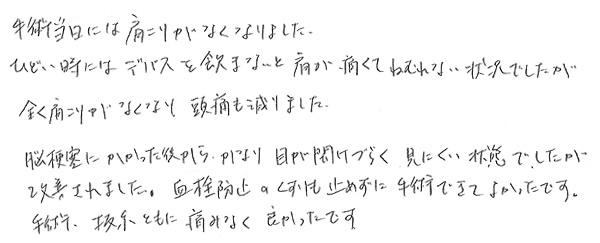 手術当日には肩こりがなくなりました.
ひどい時にはデパスを飲まないと肩が痛くてねむれない状況でしたが
全く肩こりがなくなり 頭痛も減りました.
脳梗塞にかかった後から かなり目が開けづらく 見にくい状態でしたが
改善されました。血栓防止のくすりも止めずに手術できてよかったです。
手術、抜糸ともに痛みなく良かったです